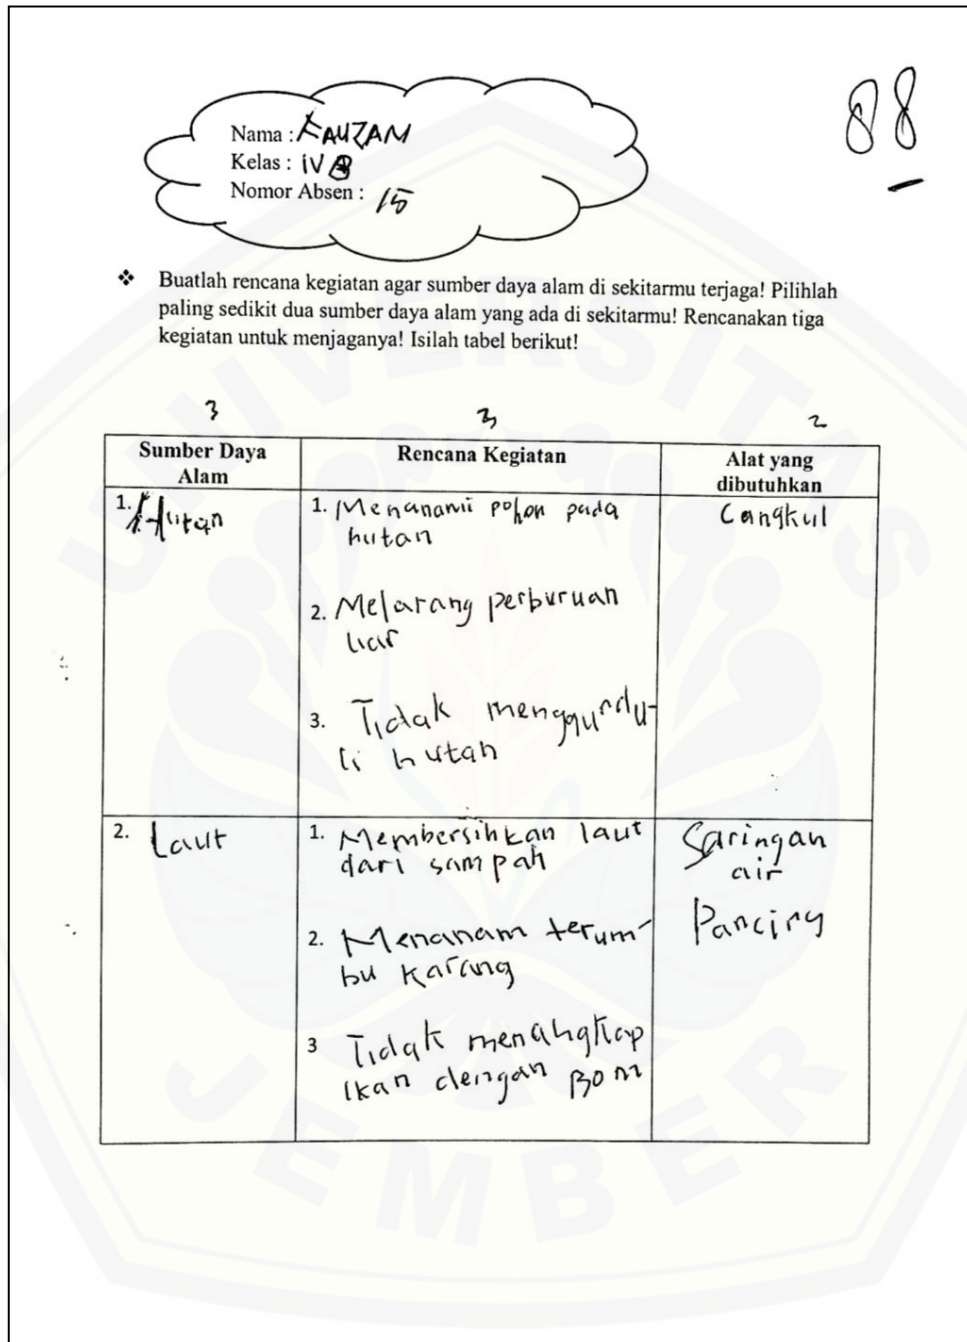 88
Nama : FAUZAN
Kelas : IV B
Nomor Absen : 15
❖ Buatlah rencana kegiatan agar sumber daya alam di sekitarmu terjaga! Pilihlah
paling sedikit dua sumber daya alam yang ada di sekitarmu! Rencanakan tiga
kegiatan untuk menjaganya! Isilah tabel berikut!
3 3 2
Sumber Daya
Alam
Rencana Kegiatan
Alat yang
dibutuhkan
1. Hutan
1. Menanami pohon pada
hutan
2. Melarang perburuan
liar
3. Tidak menggundu-
li hutan
Cangkul
2. Laut
1. Membersihkan laut
dari sampah
2. Menanam terum-
bu karang
3 Tidak menangkap
ikan dengan Bom
Saringan
air
Pancing
UNIVERSITAS
JEMBER